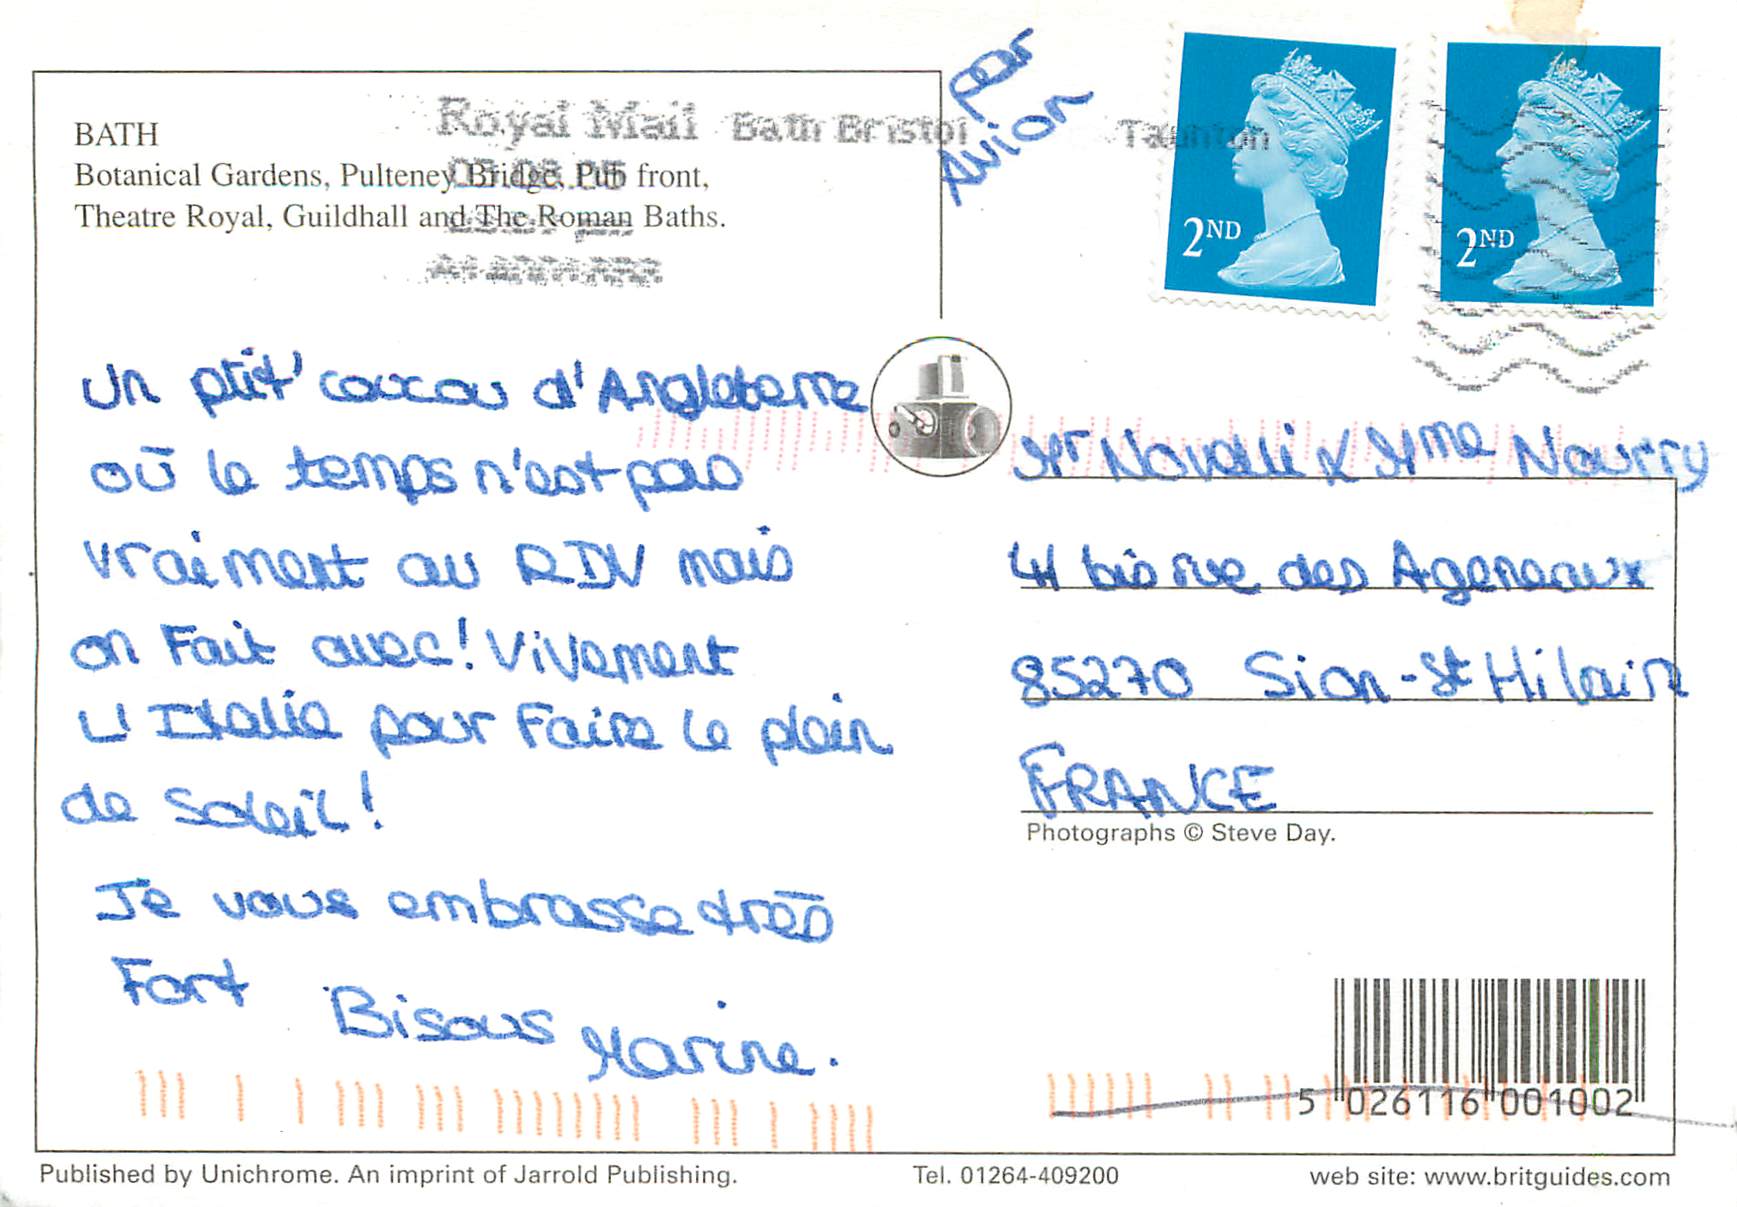 BATH
Botanical Gardens, Pulteney Bridge, Pub front,
Theatre Royal, Guildhall and The Roman Baths.
Royal Mail Bath Bristol Taunton
par
Avion
2ND
2ND
Un ptit' coucou d'Angleterre
où le temps n'est pas
vraiment au RDV mais
on Fait avec! Vivement
L'Italie pour Faire le plein
de soleil!
Je vous embrasse très
Fort
Bisous
Marine.
Mr Novelli & Mme Nourry
41 bis rue des Ageneaux
85270 Sion-St Hilaire
FRANCE
Photographs © Steve Day.
5 026116 001002
Published by Unichrome. An imprint of Jarrold Publishing.
Tel. 01264-409200
web site: www.britguides.com